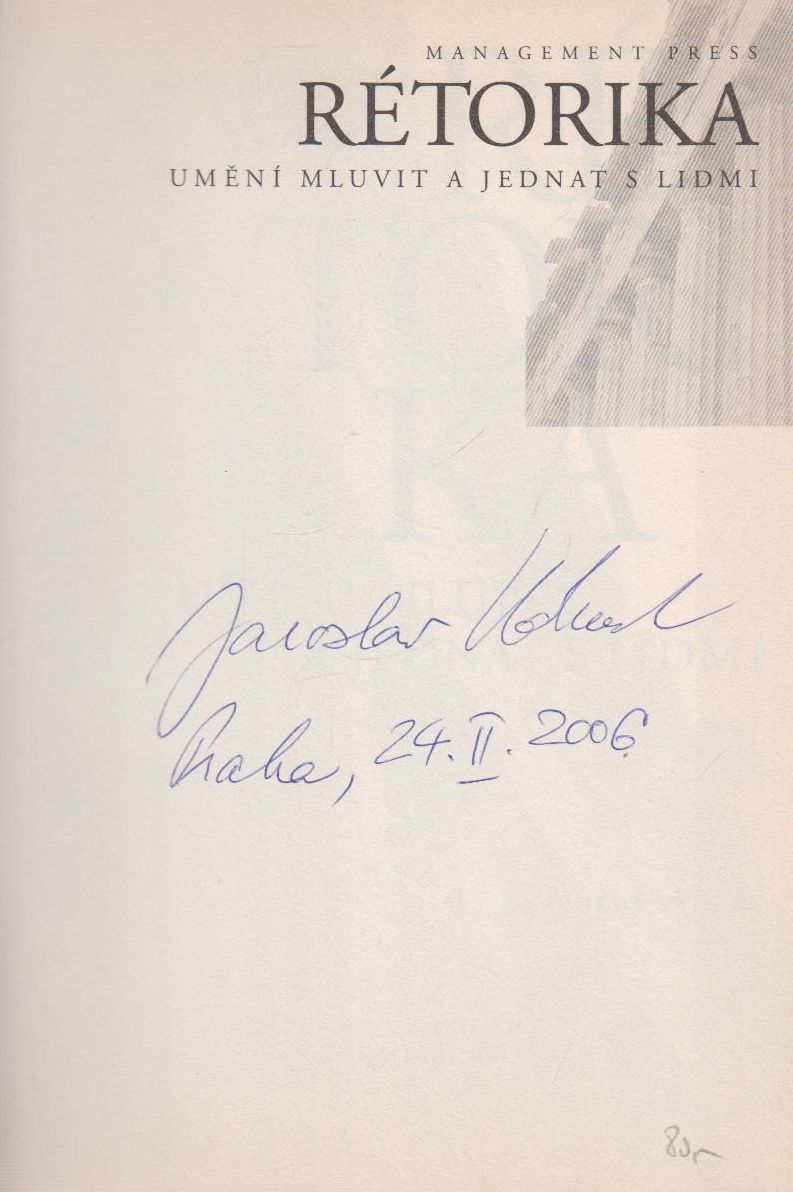 MANAGEMENT PRESS
RÉTORIKA
UMĚNÍ MLUVIT A JEDNAT S LIDMI
Jaroslav
Praha, 24. II. 2006